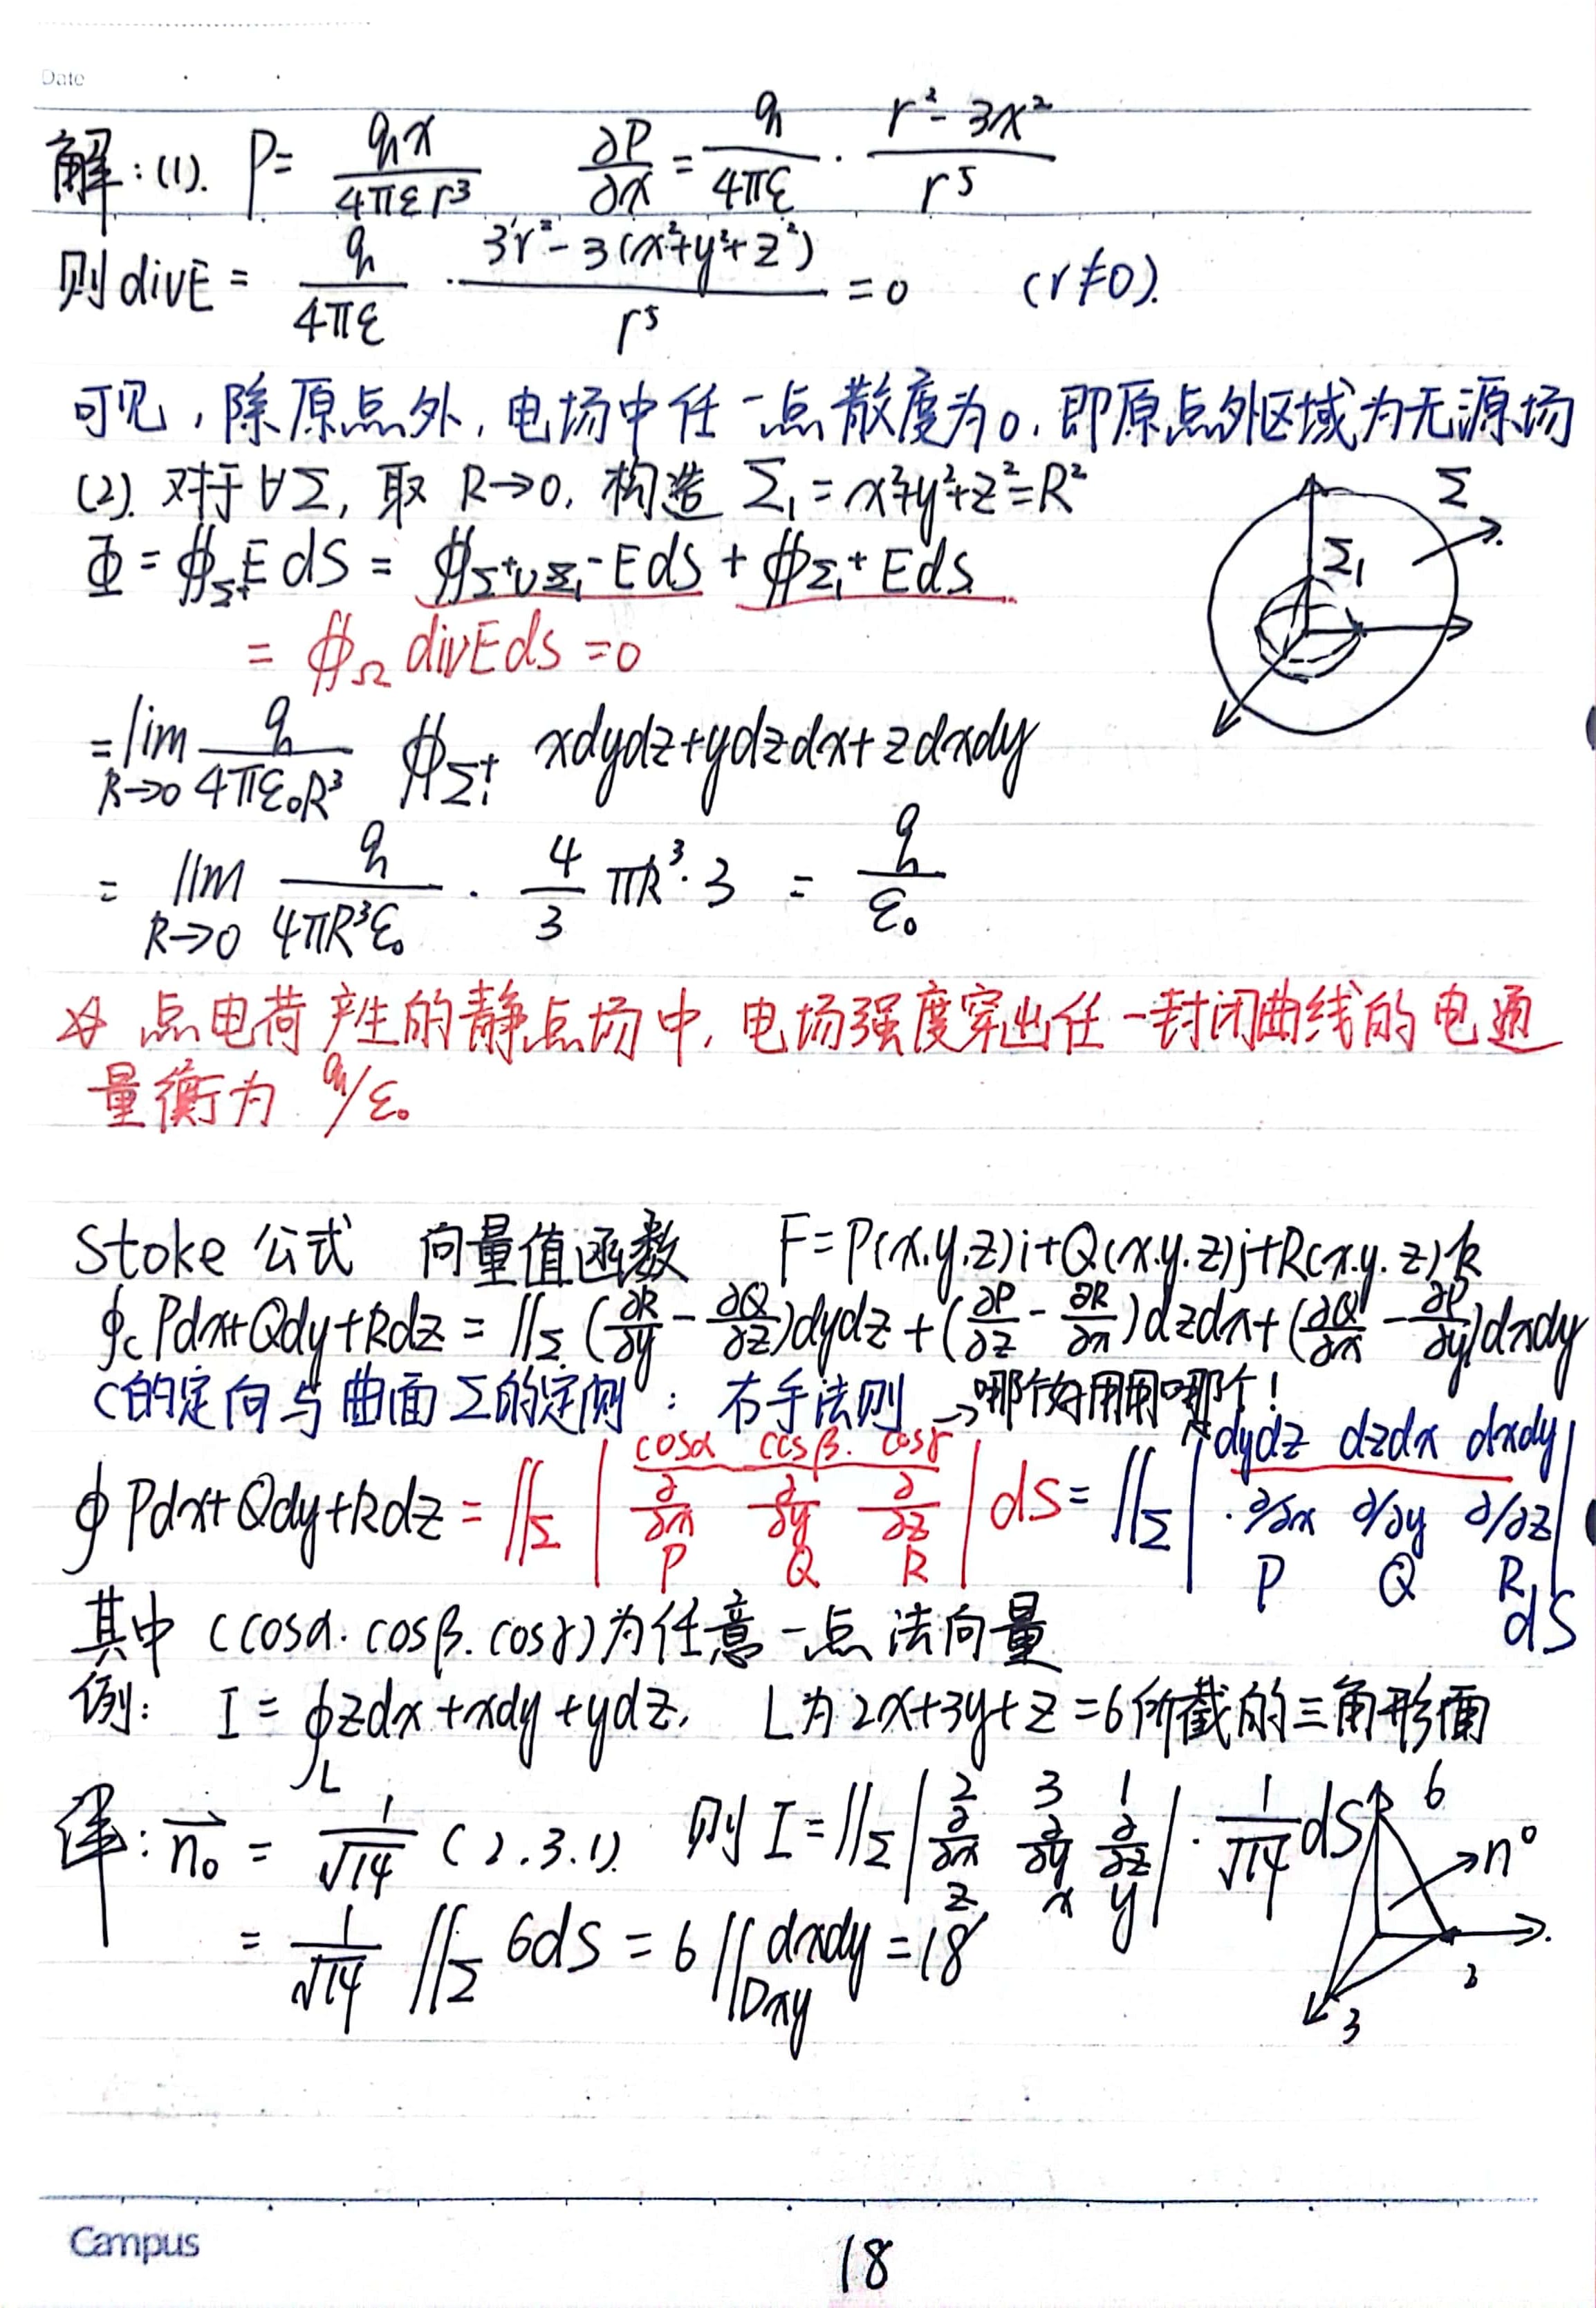 Date
解:(1). P= qx/4πεr³ ∂P/∂x = q/4πε · (r²-3x²)/r⁵
则divE = q/4πε · (3r²-3(x²+y²+z²))/r⁵ =0 (r≠0).
可见,除原点外,电场中任一点散度为0.即原点外区域为无源场
(2). 对于∀Σ,取 R→0,构造 Σ₁=x²+y²+z²=R²
Φ=∯Σ⁺ E dS = ∯Σ⁺∪Σ₁⁻ EdS + ∯Σ₁⁺ EdS
= ∯Ω divEds =0
=lim R→0 q/4πε₀R³ ∯Σ₁⁺ xdydz+ydzdx+zdxdy
= lim R→0 q/4πR³ε₀ · 4/3 πR³·3 = q/ε₀
Σ
Σ₁
点电荷产生的静点场中,电场强度穿出任一封闭曲线的电通
量衡为 q/ε₀
Stoke 公式 向量值函数 F=P(x.y.z)i+Q(x.y.z)j+R(x.y.z)k
∮c Pdx+Qdy+Rdz = ∬Σ (∂R/∂y - ∂Q/∂z)dydz+(∂P/∂z - ∂R/∂x)dzdx+(∂Q/∂x - ∂P/∂y)dxdy
C的定向与曲面Σ的定侧 : 右手法则 →哪个好用用哪个!
∮ Pdx+Qdy+Rdz = ∬Σ | cosα cosβ. cosγ ∂/∂x ∂/∂y ∂/∂z P Q R | dS = ∬Σ | dydz dzdx dxdy ∂/∂x ∂/∂y ∂/∂z P Q R | dS
其中 (cosα. cosβ. cosγ)为任意一点法向量
例: I = ∮L zdx+xdy+ydz, L为2x+3y+z=6所截的三角形面
解: n₀ = 1/√14 (2.3.1). 则 I=∬Σ | 2 3 1 ∂/∂x ∂/∂y ∂/∂z z x y | · 1/√14 dS
= 1/√14 ∬Σ 6dS = 6∬Dxy dxdy =18
6
n⁰
2
3
Campus
18